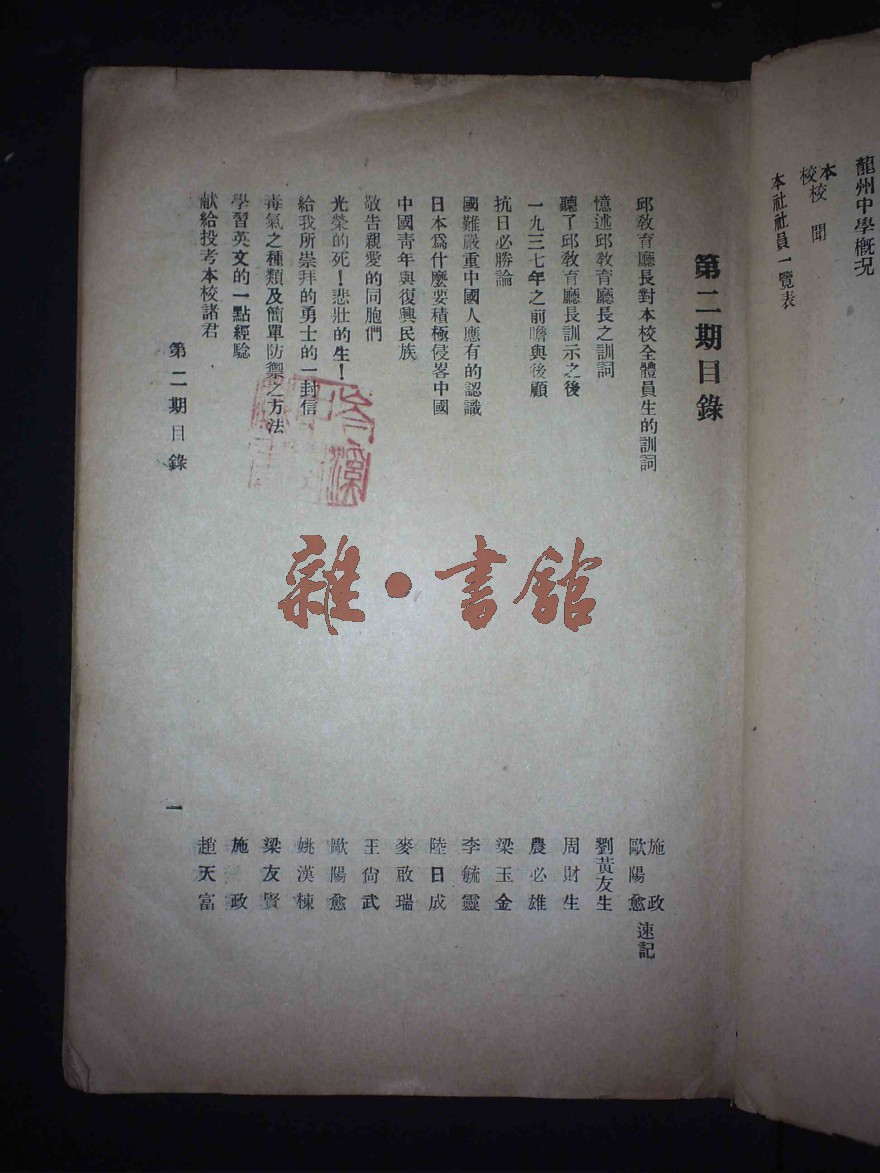 龍州中學概況
本校校聞
本社社員一覽表
第二期目錄
邱敎育廳長對本校全體員生的訓詞 施政 歐陽愈 速記
憶述邱敎育廳長之訓詞 劉黃友生
聽了邱敎育廳長訓示之後 周財生
一九三七年之前瞻與後顧 農必雄
抗日必勝論 梁玉金
國難嚴重中國人應有的認識 李毓靈
日本爲什麼要積極侵畧中國 陸日成
中國靑年與復興民族 麥啟瑞
敬告親愛的同胞們 王尙武
光榮的死！悲壯的生！ 歐陽愈
給我所崇拜的勇士的一封信 姚漢棟
毒氣之種類及簡單防禦之方法 梁友賢
學習英文的一點經驗 施政
献給投考本校諸君 趙天富
第二期目錄
一
雜·書館